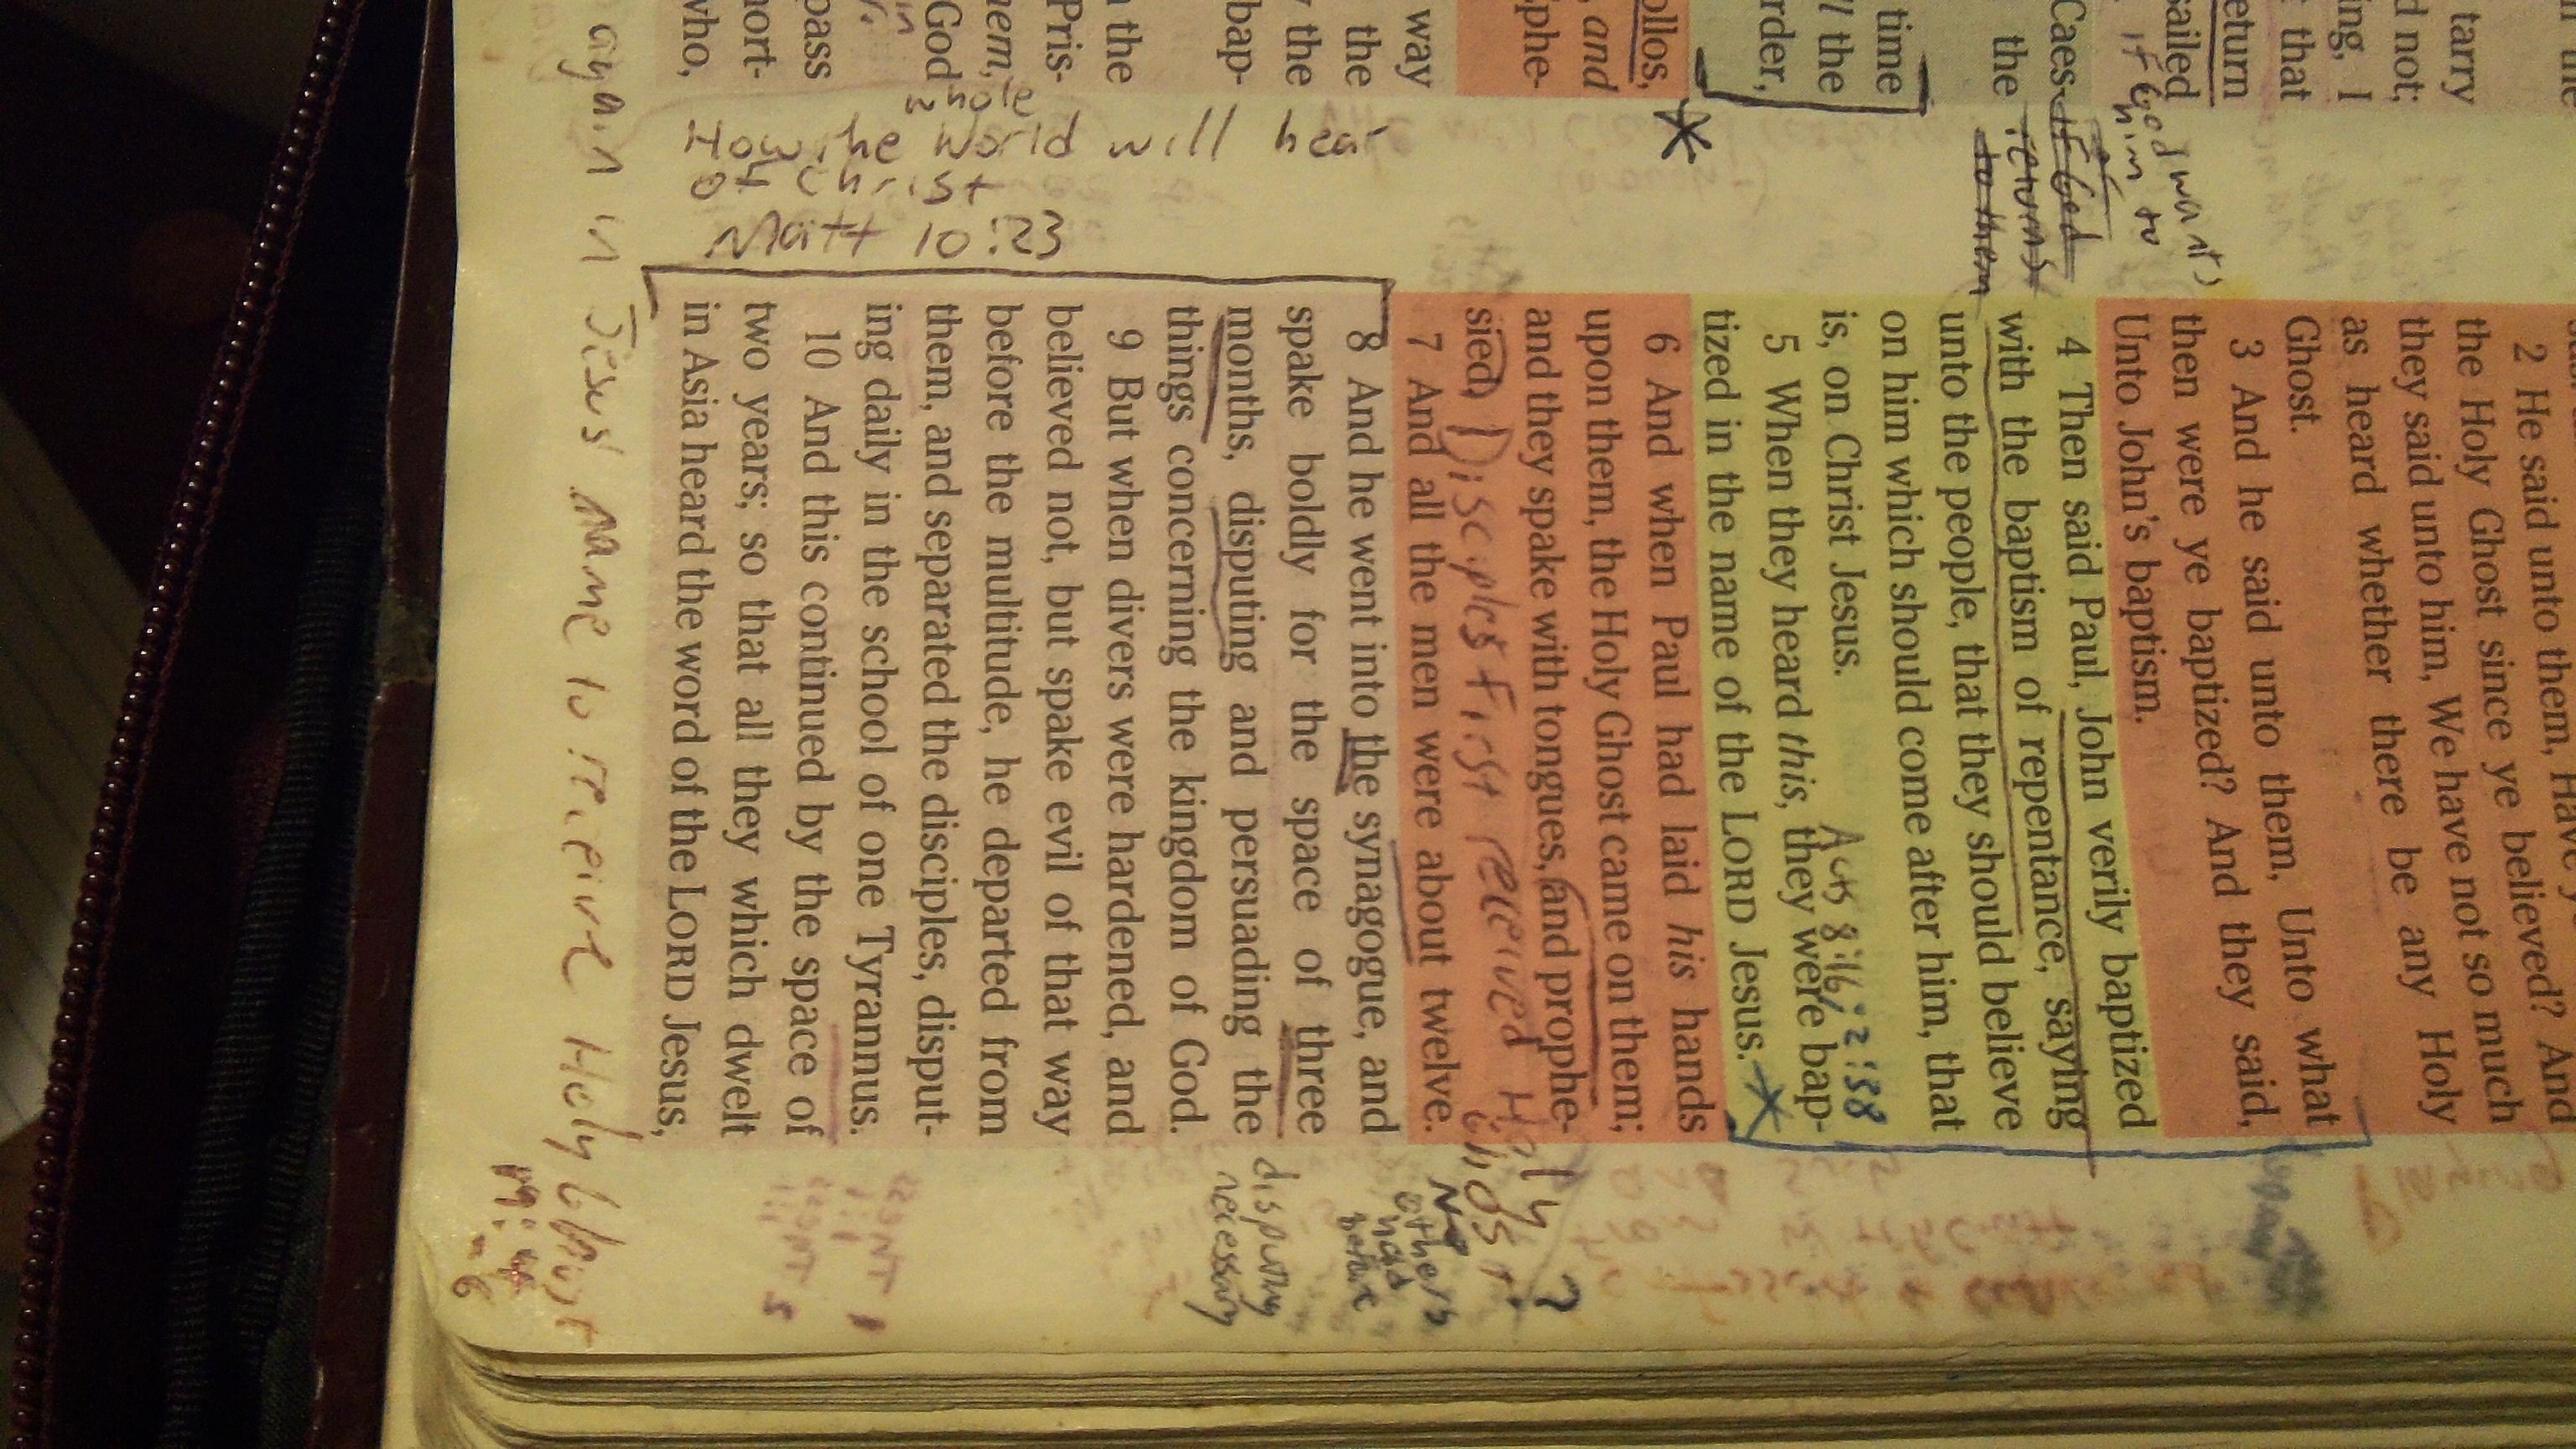 the
tarry
d not;
ing, I
that
eturn
sailed
Caes-
the
time
the
rder,
ollos,
and
phe-
way
the
the
bap-
the
Pris-
hem,
God
pass
hort-
who,
if God wants
him to
if God
returns
to them
whole
How the world will hear
of Christ
Matt 10:23
2 He said unto them, Have y
the Holy Ghost since ye believed? And
they said unto him, We have not so much
as heard whether there be any Holy
Ghost.
3 And he said unto them, Unto what
then were ye baptized? And they said,
Unto John's baptism.
4 Then said Paul, John verily baptized
with the baptism of repentance, saying
unto the people, that they should believe
on him which should come after him, that
is, on Christ Jesus.
Acts 8:16 / 2:38
5 When they heard this, they were bap-
tized in the name of the LORD Jesus.
6 And when Paul had laid his hands
upon them, the Holy Ghost came on them;
and they spake with tongues, and prophe-
sied.
Disciples First received Holy Ghost. ?
7 And all the men were about twelve.
No
others
had
before
8 And he went into the synagogue, and
spake boldly for the space of three
months, disputing and persuading the
things concerning the kingdom of God.
disputing
necessary
9 But when divers were hardened, and
believed not, but spake evil of that way
before the multitude, he departed from
them, and separated the disciples, disput-
ing daily in the school of one Tyrannus.
10 And this continued by the space of
two years; so that all they which dwelt
in Asia heard the word of the LORD Jesus,
again in Jesus' name to receive Holy Ghost